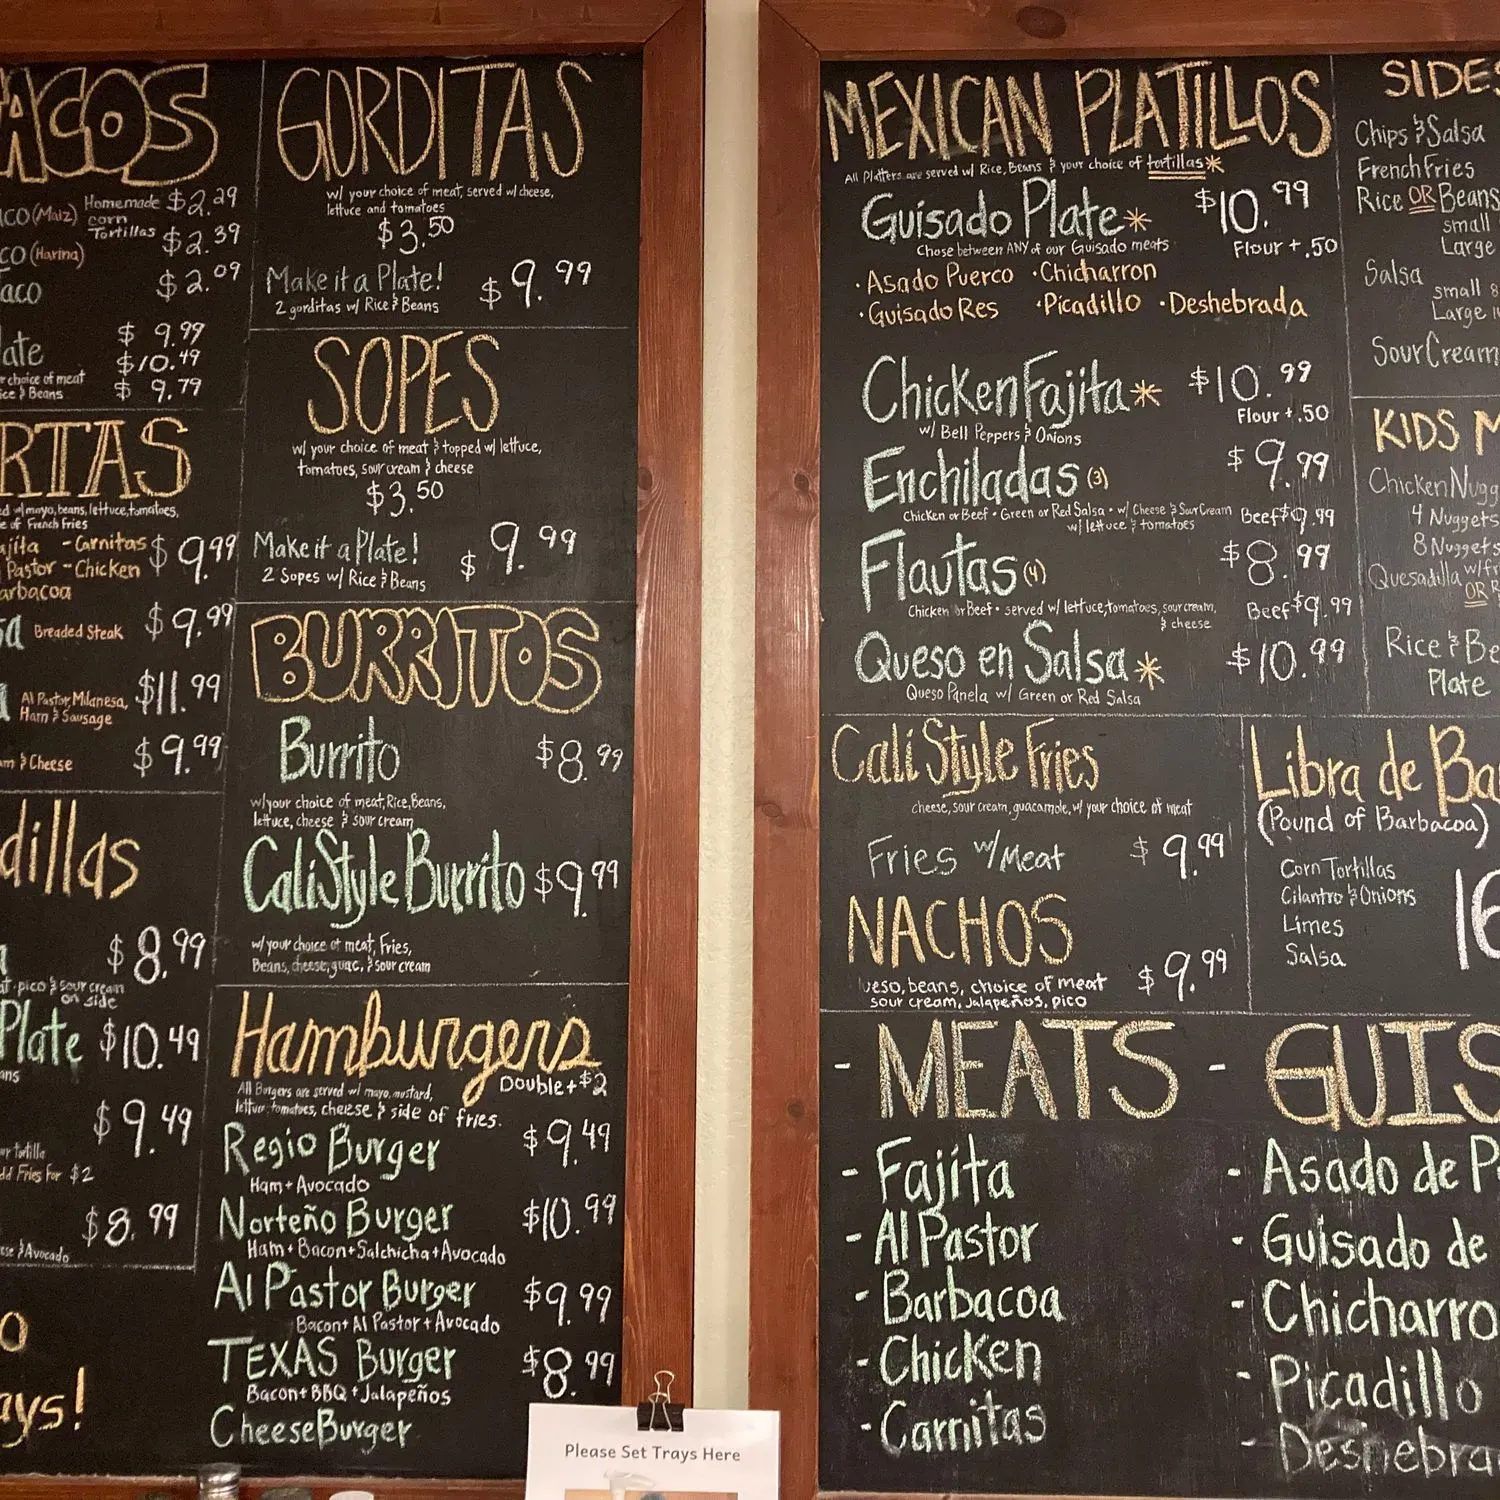 TACOS
Homemade corn Tortillas
(Maiz) $2.29
(Harina) $2.39
$2.09
$ 9.99
$10.49
choice of meat
& Beans $ 9.79
w/mayo, beans, lettuce, tomatoes,
of French Fries
-Carnitas $9.99
Pastor -Chicken
Breaded Steak $9.99
Al Pastor, Milanesa, $11.99
Ham & Sausage
& Cheese $9.99
$8.99
pico & sour cream
on side
Plate $10.49
$9.49
Fries for $2
$8.99
& Avocado
GORDITAS
w/ your choice of meat, served w/ cheese,
lettuce and tomatoes
$3.50
Make it a Plate! $9.99
2 gorditas w/ Rice & Beans
SOPES
w/ your choice of meat & topped w/ lettuce,
tomatoes, sour cream & cheese
$3.50
Make it a Plate! $9.99
2 Sopes w/ Rice & Beans
BURRITOS
Burrito $8.99
w/your choice of meat, Rice, Beans,
lettuce, cheese & sour cream
Cali Style Burrito $9.99
w/your choice of meat, Fries,
Beans, cheese, guac, & sour cream
Hamburgers
Double + $2
All Burgers are served w/ mayo, mustard,
lettuce tomatoes, cheese & side of fries.
Regio Burger $9.49
Ham + Avocado
Norteño Burger $10.99
Ham + Bacon + Salchicha + Avocado
Al Pastor Burger $9.99
Bacon + Al Pastor + Avocado
TEXAS Burger $8.99
Bacon + BBQ + Jalapeños
CheeseBurger
Please Set Trays Here
MEXICAN PLATILLOS
All Platters are served w/ Rice, Beans & your choice of tortillas*
Guisado Plate* $10.99
Chose between ANY of our Guisado meats Flour + .50
·Asado Puerco ·Chicharron
·Guisado Res ·Picadillo ·Deshebrada
Chicken Fajita* $10.99
Flour + .50
w/ Bell Peppers & Onions
Enchiladas (3) $9.99
Chicken or Beef • Green or Red Salsa • w/ Cheese & Sour Cream Beef $9.99
w/ lettuce & tomatoes
Flautas (4) $8.99
Chicken or Beef • served w/ lettuce, tomatoes, sour cream, Beef $9.99
& cheese
Queso en Salsa* $10.99
Queso Panela w/ Green or Red Salsa
Cali Style Fries
cheese, sour cream, guacamole, w/ your choice of meat
Fries w/ Meat $9.99
NACHOS $9.99
ueso, beans, choice of meat
sour cream, Jalapeños, pico
SIDES
Chips & Salsa
French Fries
Rice OR Beans
small
Large
Salsa
small 8
Large
Sour Cream
KIDS
Chicken Nugg
4 Nuggets
8 Nuggets
Quesadilla w/
OR
Rice &
Plate
Libra de Ba
(Pound of Barbacoa)
Corn Tortillas
Cilantro & Onions
Limes
Salsa
16
- MEATS
- Fajita
- Al Pastor
- Barbacoa
- Chicken
- Carnitas
- GUIS
- Asado de P
- Guisado de
- Chicharro
- Picadillo
- Deshebra